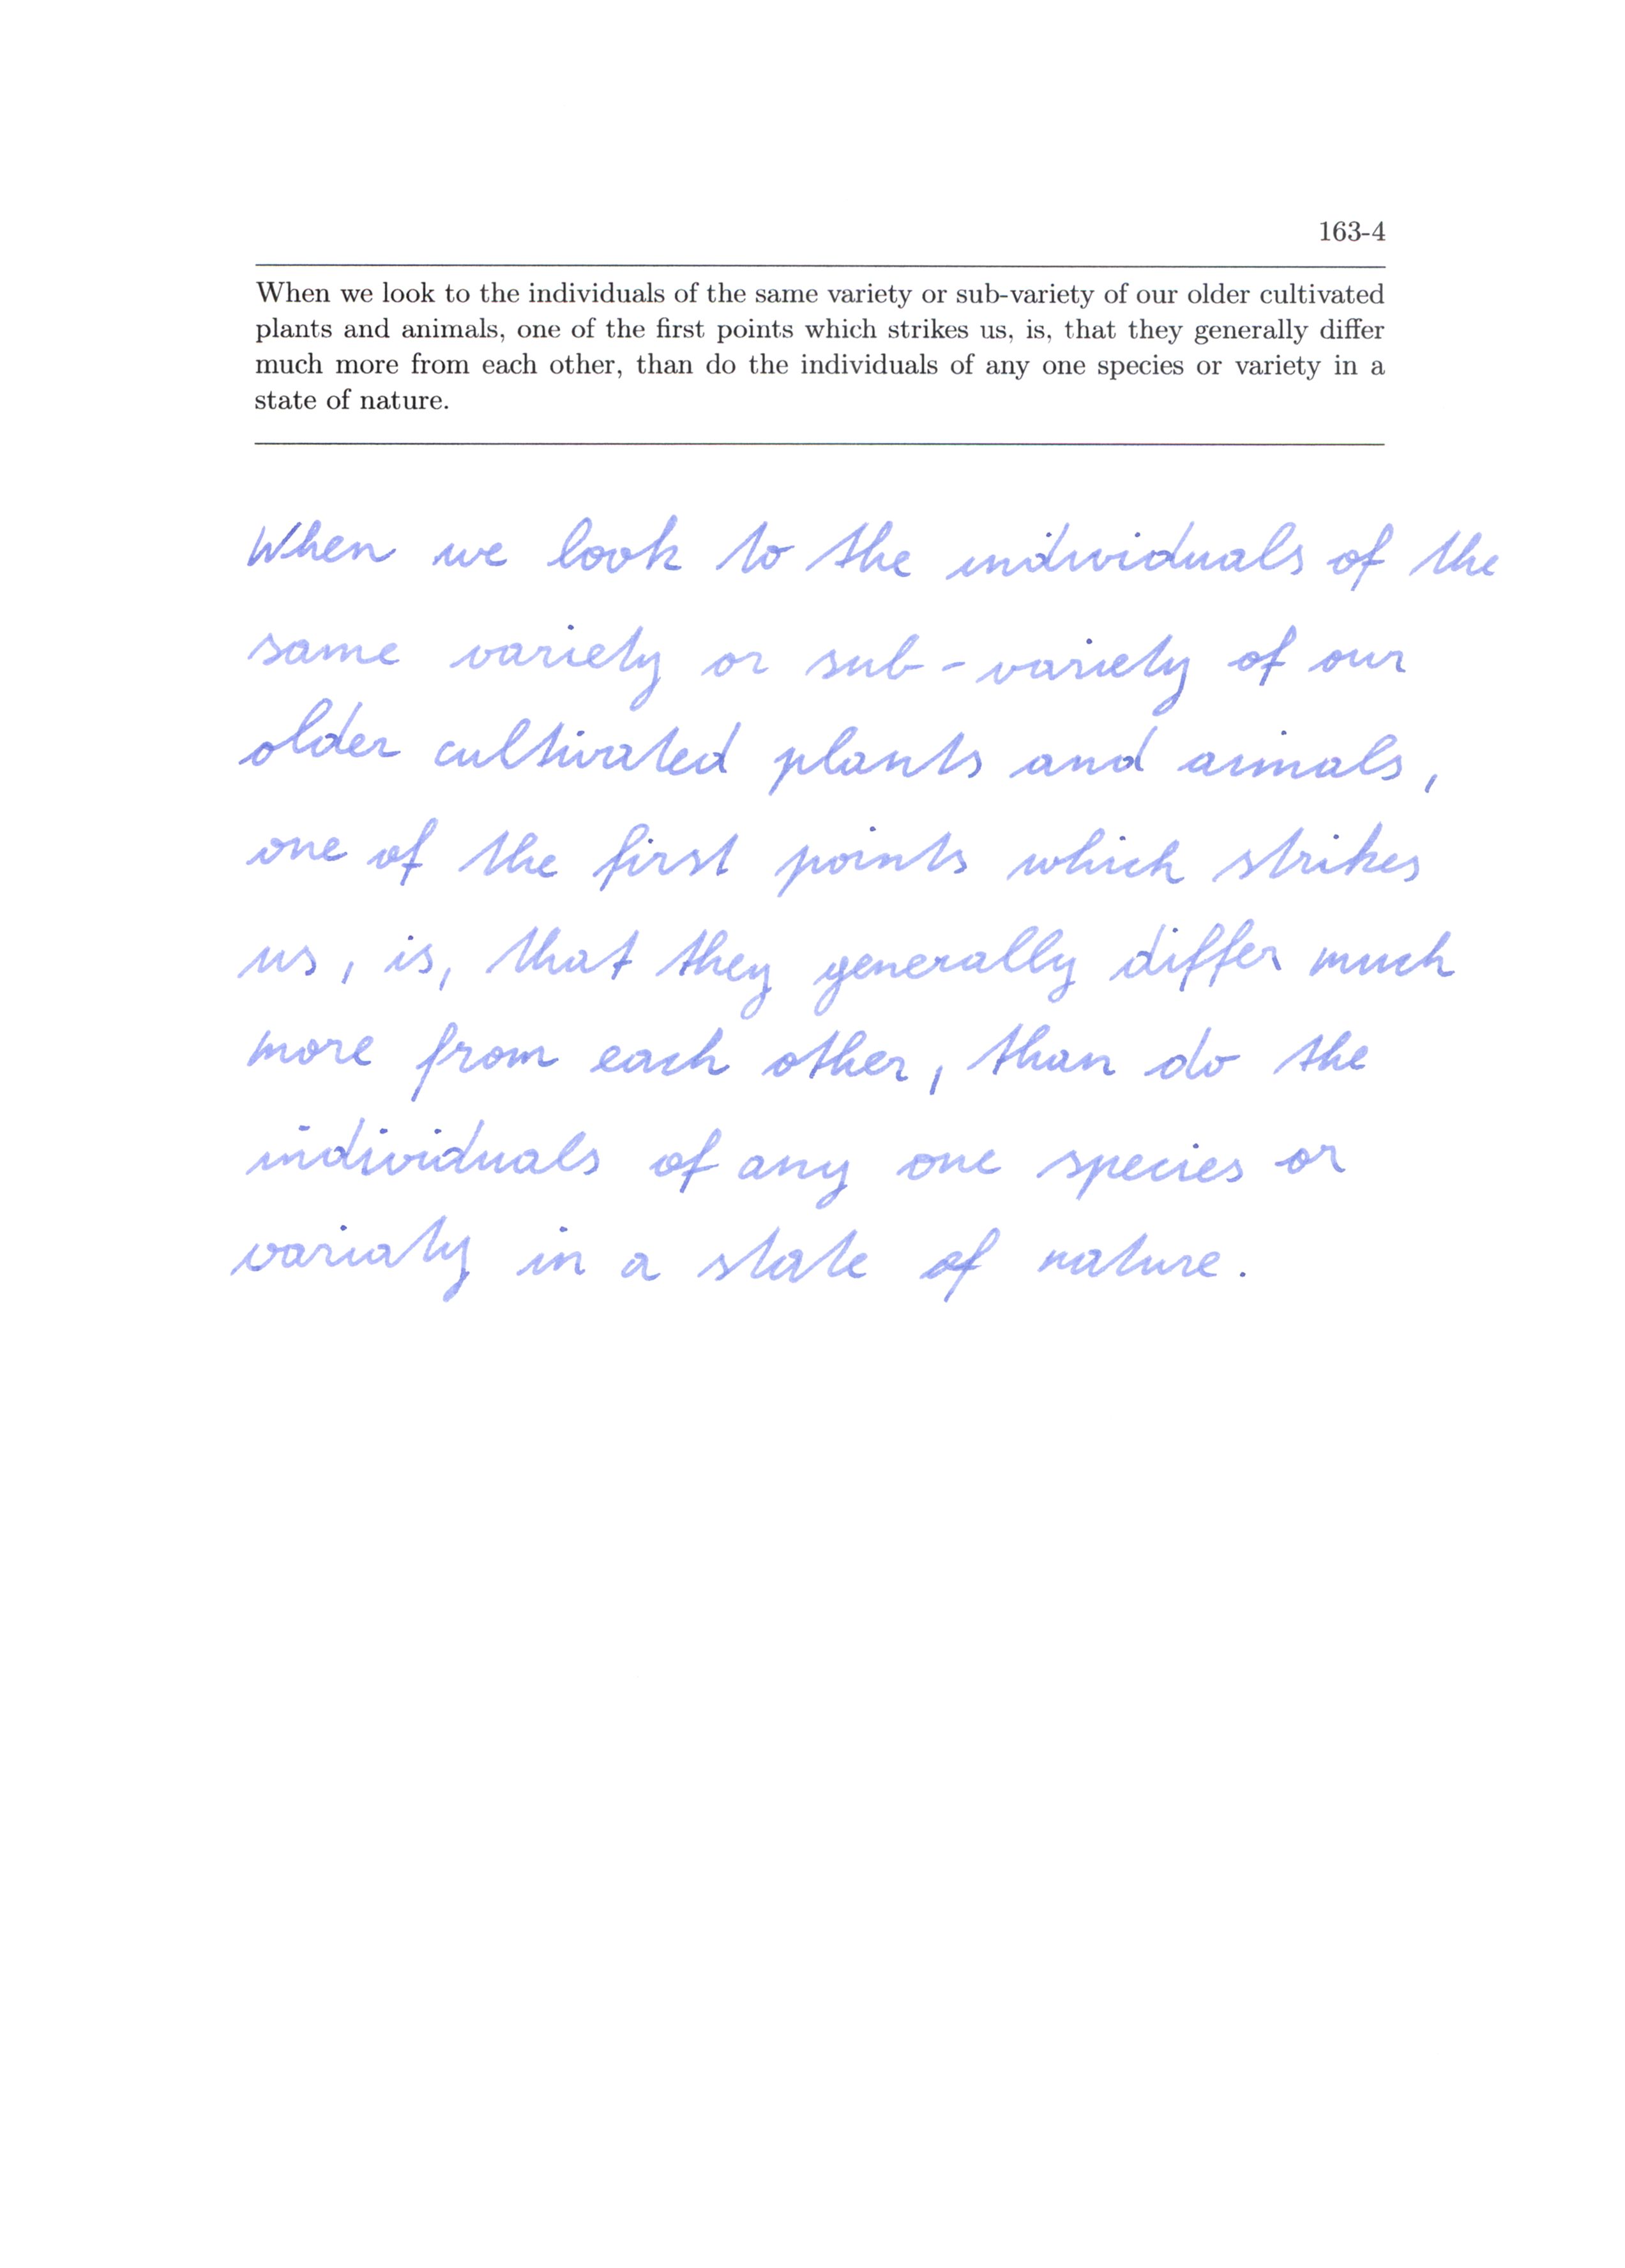 163-4
When we look to the individuals of the same variety or sub-variety of our older cultivated
plants and animals, one of the first points which strikes us, is, that they generally differ
much more from each other, than do the individuals of any one species or variety in a
state of nature.
When we look to the individuals of the
same variety or sub-variety of our
older cultivated plants and animals,
one of the first points which strikes
us, is, that they generally differ much
more from each other, than do the
individuals of any one species or
variaty in a state of nature.